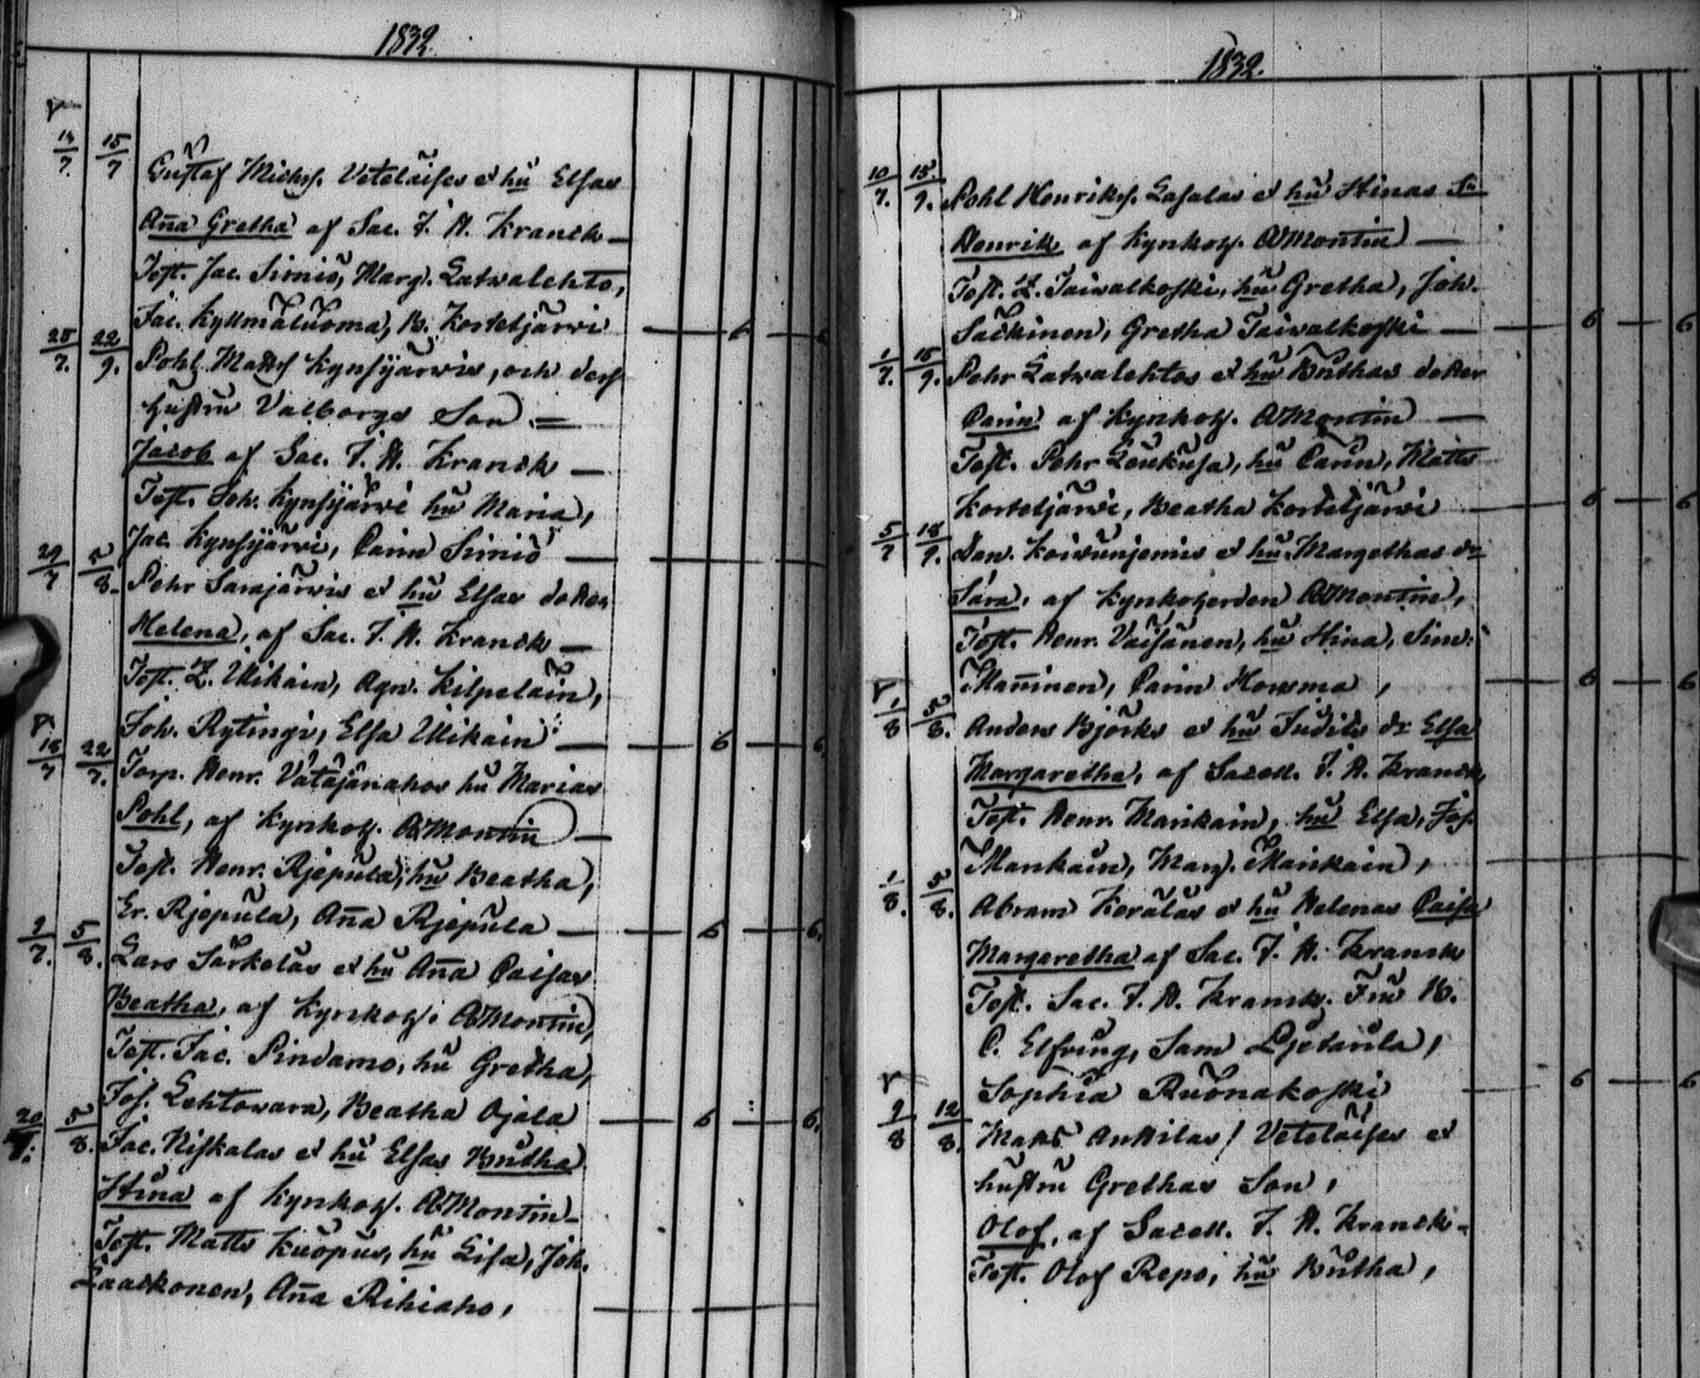 1832
14/7. 15/7 Gustaf Michs. Vetelaises et hu Elsas
Aña Gretha af Sac. J. A. Kranck —
Test. Jac. Simiö, Marg. Latvalehto,
Jac. Kyllmäluoma, B. Kortetjärvi — 6
25/7. 22/9. Pohl Matts Kynsijärvis, och dess
hustru Valborgs Son =
Jacob af Sac. J. A. Kranck —
Test. Joh. Kynsijärvi hu Maria,
Jac. Kynsijärvi, Carin Simiö —
29/7 5/8. Pehr Sarajärvis et hu Elsas dotter
Helena, af Sac. J. A. Kranck —
Test. Z. Ulikain, Agn. Kilpelain,
Joh. Rytingi, Elsa Ulikain — 6 — 6
18/7 22/7. Torp. Henr. Vätäjänahos hu Marias
Pohl, af Kynkog. A Montin —
Test. Henr. Rjepula, hu Beatha,
Er. Rjepula, Aña Rjepula — 6 — 6.
9/7. 5/8. Lars Särkelas et hu Aña Caisas
Beatha, af Kynkog. A Montin,
Test. Jac. Pindamo, hu Gretha,
Jos. Lehtovara, Beatha Ojala — 6 — 6.
20/7. 5/8. Jac. Niskalas et hu Elsas Britha
Stina af Kynkog. A Montin —
Test. Matts Kuopus, hu Lisa, Joh.
Laackonen, Aña Rihiaho,
1832.
10/7. 15/9. Pohl Henriks. Lasalas et hu Stinas Sn
Henrik af Kynkog. A Montin —
Test. Z. Taivalkoski, hu Gretha, Joh.
Säckinen, Gretha Taivalkoski — 6 — 6
1/7. 15/9. Pehr Latvalehtos et hu Brithas dotter
Carin af Kynkog. A Montin —
Test. Pehr Loukusa, hu Carin, Matts
Kortetjärvi, Beatha Kortetjärvi — 6 — 6
5/7 18/9. Dan. Koivuniemis et hu Margethas dr
Sara, af Kynkogerden A Montin,
Test. Henr. Väisänen, hu Stina, Sim.
Mañinen, Carin Howma, — 6 — 6
1/8 5/8. Anders Björks et hu Judits dr Elsa
Margaretha, af Sacell. J. A. Kranck,
Test. Henr. Manikain, hu Elsa, Jos.
Manikain, Marg. Manikain,
1/8. 5/8. Abram Keralas et hu Helenas Caisa
Margaretha af Sac. J. A. Kranck
Test. Sac. J. A. Kranck. Fru B.
C. Elfving, Sam Ljetarila,
Sophia Ruonakoski — 6 — 6
9/8 12/8. Matts Anttilas / Vetelaises et
hustru Grethas Son,
Olof, af Sacell. J. A. Kranck —
Test. Olof Repo, hu Britha,